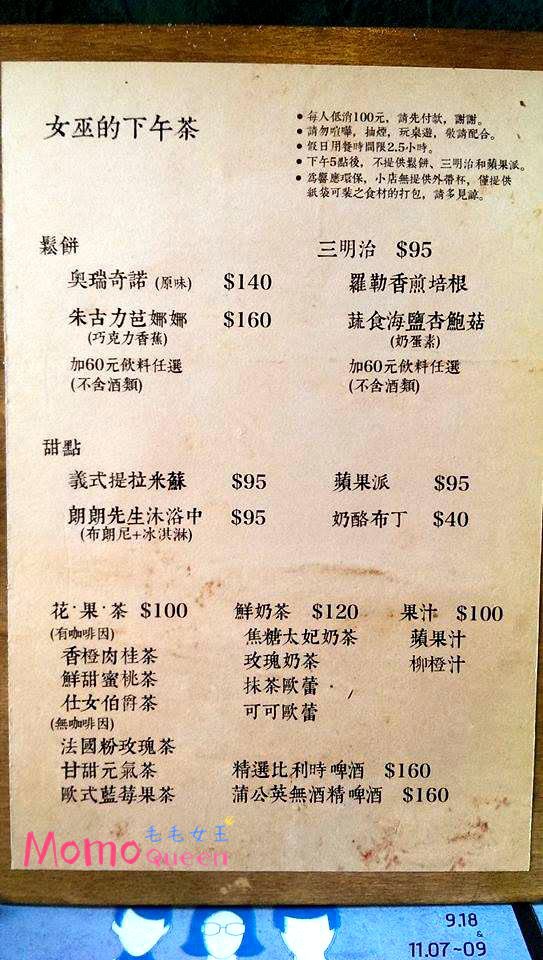 女巫的下午茶
• 每人低消100元，請先付款，謝謝。
• 請勿喧嘩，抽煙，玩桌遊，敬請配合。
• 假日用餐時間限2.5小時。
• 下午5點後，不提供鬆餅、三明治和蘋果派。
• 為響應環保，小店無提供外帶杯，僅提供
紙袋可裝之食材的打包，請多見諒。
鬆餅
奧瑞奇諾 (原味) $140
朱古力芭娜娜 $160
(巧克力香蕉)
加60元飲料任選
(不含酒類)
三明治 $95
羅勒香煎培根
蔬食海鹽杏鮑菇
(奶蛋素)
加60元飲料任選
(不含酒類)
甜點
義式提拉米蘇 $95
朗朗先生沐浴中 $95
(布朗尼+冰淇淋)
蘋果派 $95
奶酪布丁 $40
花·果·茶 $100
(有咖啡因)
香橙肉桂茶
鮮甜蜜桃茶
仕女伯爵茶
(無咖啡因)
法國粉玫瑰茶
甘甜元氣茶
歐式藍莓果茶
鮮奶茶 $120
焦糖太妃奶茶
玫瑰奶茶
抹茶歐蕾
可可歐蕾
果汁 $100
蘋果汁
柳橙汁
精選比利時啤酒 $160
蒲公英無酒精啤酒 $160
Momo 毛毛女王
Queen
9.18
&
11.07~09